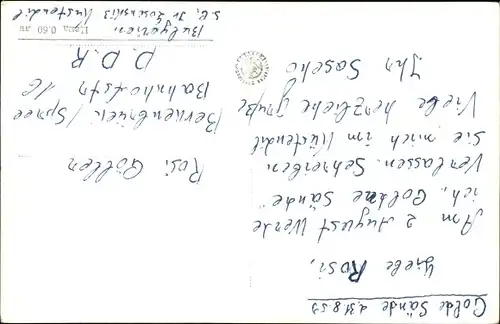 Golde Sände d. 31.8.59
Liebe Rosi,
Am 2 August Werde
ich, Goldne Sände"
Verlassen. Schreiben
Sie mich im Küstendil
Viele herzliche Grüße
Ihr Sascho
Rosi Göllen
Berkenbrück / Spree
Bahnhofstr 1c
D.D.R
Цена 0.60 лв
Bulgarien
Küstendil